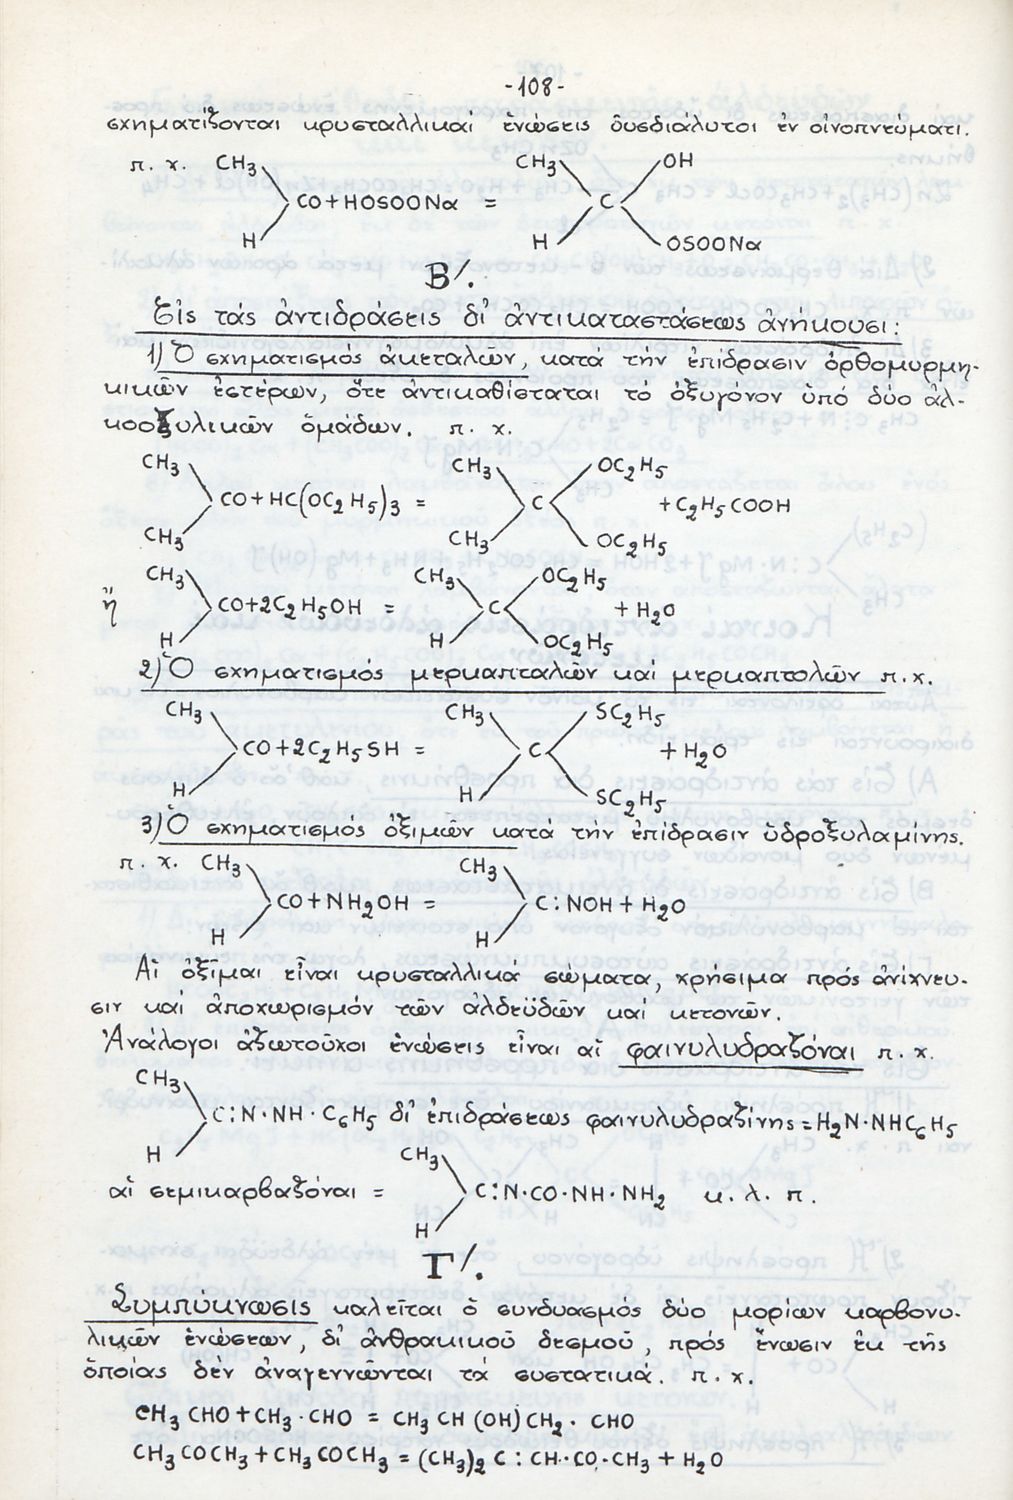 -108-
σχηματίζονται κρυσταλλικαί ἑνώσεις δυσδιάλυτοι ἐν οἰνοπνεύματι.
π. χ. CH3 CH3 OH
CO+HOSOONa = C
H H OSOONa
Β/.
Εἰς τάς ἀντιδράσεις δι' ἀντικαταστάσεως ἀνήκουσι:
1) Ὁ σχηματισμός ἀκεταλῶν, κατά τήν ἐπίδρασιν ὀρθομυρμη-
κικῶν ἐστέρων, ὅτε ἀντικαθίσταται τό ὀξυγόνον ὑπό δύο ἀλ-
κοοξυλικῶν ὁμάδων. π. χ.
CH3 CH3 OC2H5
CO+HC(OC2H5)3 = C +C2H5COOH
CH3 CH3 OC2H5
CH3 CH3 OC2H5
ἤ CO+2C2H5OH = C +H2O
H H OC2H5
2) Ὁ σχηματισμός μερκαπταλῶν καί μερκαπτολῶν π.χ.
CH3 CH3 SC2H5
CO+2C2H5SH = C +H2O
H H SC2H5
3) Ὁ σχηματισμός ὀξιμῶν κατά τήν ἐπίδρασιν ὑδροξυλαμίνης.
π. χ. CH3 CH3
CO+NH2OH = C:NOH+H2O
H H
Αἱ ὀξῖμαι εἶναι κρυσταλλικά σώματα, χρήσιμα πρός ἀνίχνευ-
σιν καί ἀποχωρισμόν τῶν ἀλδεϋδῶν καί κετονῶν.
Ἀνάλογοι ἀζωτοῦχοι ἑνώσεις εἶναι αἱ φαινυλυδραζόναι π. χ.
CH3
C:N·NH·C6H5 δι' ἐπιδράσεως φαινυλυδραζίνης=H2N·NHC6H5
H
CH3
αἱ σεμικαρβαζόναι = C:N·CO·NH·NH2 κ. λ. π.
H
Γ/.
Συμπύκνωσις καλεῖται ὁ συνδυασμός δύο μορίων καρβονυ-
λικῶν ἑνώσεων, δι' ἀνθρακικοῦ δεσμοῦ, πρός ἕνωσιν ἐκ τῆς
ὁποίας δέν ἀναγεννῶνται τά συστατικά. π. χ.
CH3CHO+CH3·CHO = CH3CH(OH)CH2·CHO
CH3COCH3+CH3COCH3=(CH3)2C:CH·CO·CH3+H2O